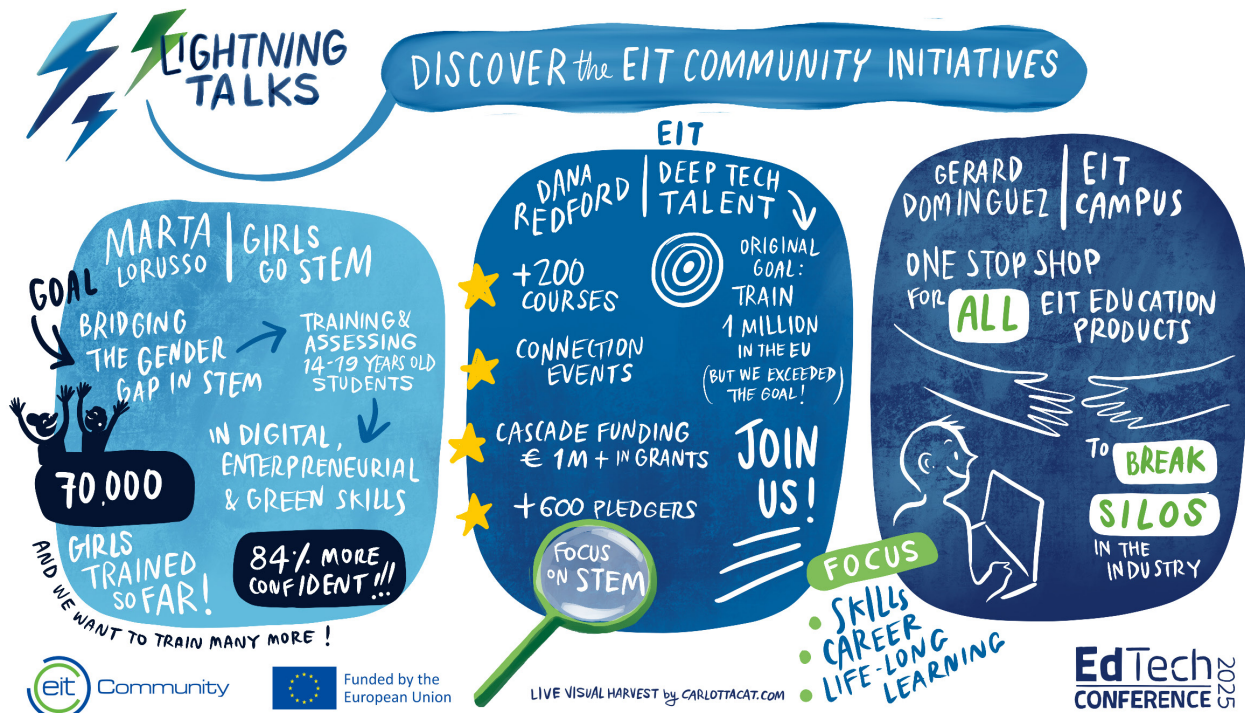 LIGHTNING
TALKS
DISCOVER the EIT COMMUNITY INITIATIVES
MARTA
LORUSSO
GIRLS
GO STEM
GOAL
BRIDGING
THE GENDER
GAP IN STEM
TRAINING &
ASSESSING
14-19 YEARS OLD
STUDENTS
IN DIGITAL,
ENTERPRENEURIAL
& GREEN SKILLS
70,000
GIRLS
TRAINED
SO FAR!
84% MORE
CONFIDENT!!!
AND WE WANT TO TRAIN MANY MORE!
EIT
DANA
REDFORD
DEEP TECH
TALENT
+200
COURSES
CONNECTION
EVENTS
CASCADE FUNDING
€ 1M + IN GRANTS
+600 PLEDGERS
ORIGINAL
GOAL:
TRAIN
1 MILLION
IN THE EU
(BUT WE EXCEEDED
THE GOAL!)
JOIN
US!
FOCUS
ON STEM
GERARD
DOMINGUEZ
EIT
CAMPUS
ONE STOP SHOP
FOR ALL EIT EDUCATION
PRODUCTS
TO BREAK
SILOS
IN THE
INDUSTRY
FOCUS
SKILLS
CAREER
LIFE-LONG
LEARNING
eit Community
Funded by the
European Union
LIVE VISUAL HARVEST by CARLOTTACAT.COM
EdTech
CONFERENCE
2025